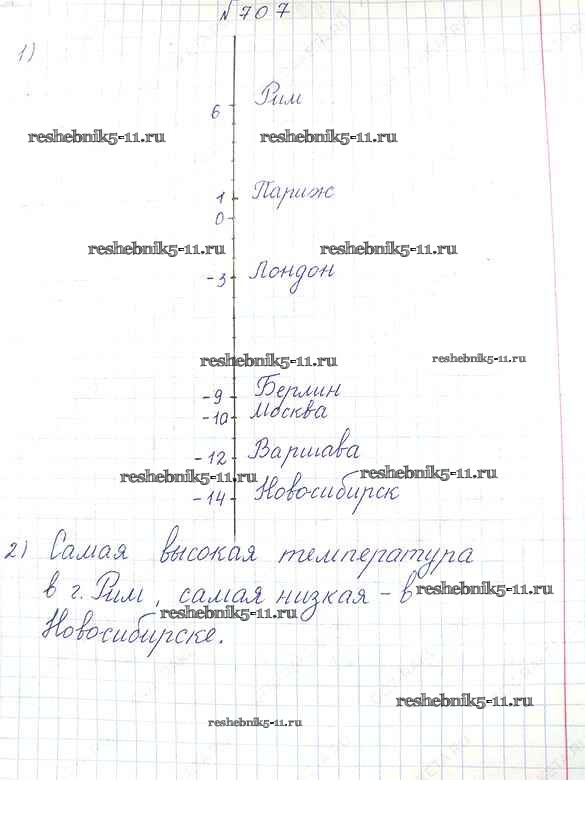 № 707
1)
6 Рим
reshebnik5-11.ru reshebnik5-11.ru
1 Париж
0
reshebnik5-11.ru reshebnik5-11.ru
-3 Лондон
reshebnik5-11.ru reshebnik5-11.ru
-9 Берлин
-10 Москва
-12 Варшава
reshebnik5-11.ru reshebnik5-11.ru
-14 Новосибирск
2) Самая высокая температура
в г. Рим, самая низкая - в
reshebnik5-11.ru
reshebnik5-11.ru
Новосибирске.
reshebnik5-11.ru
reshebnik5-11.ru